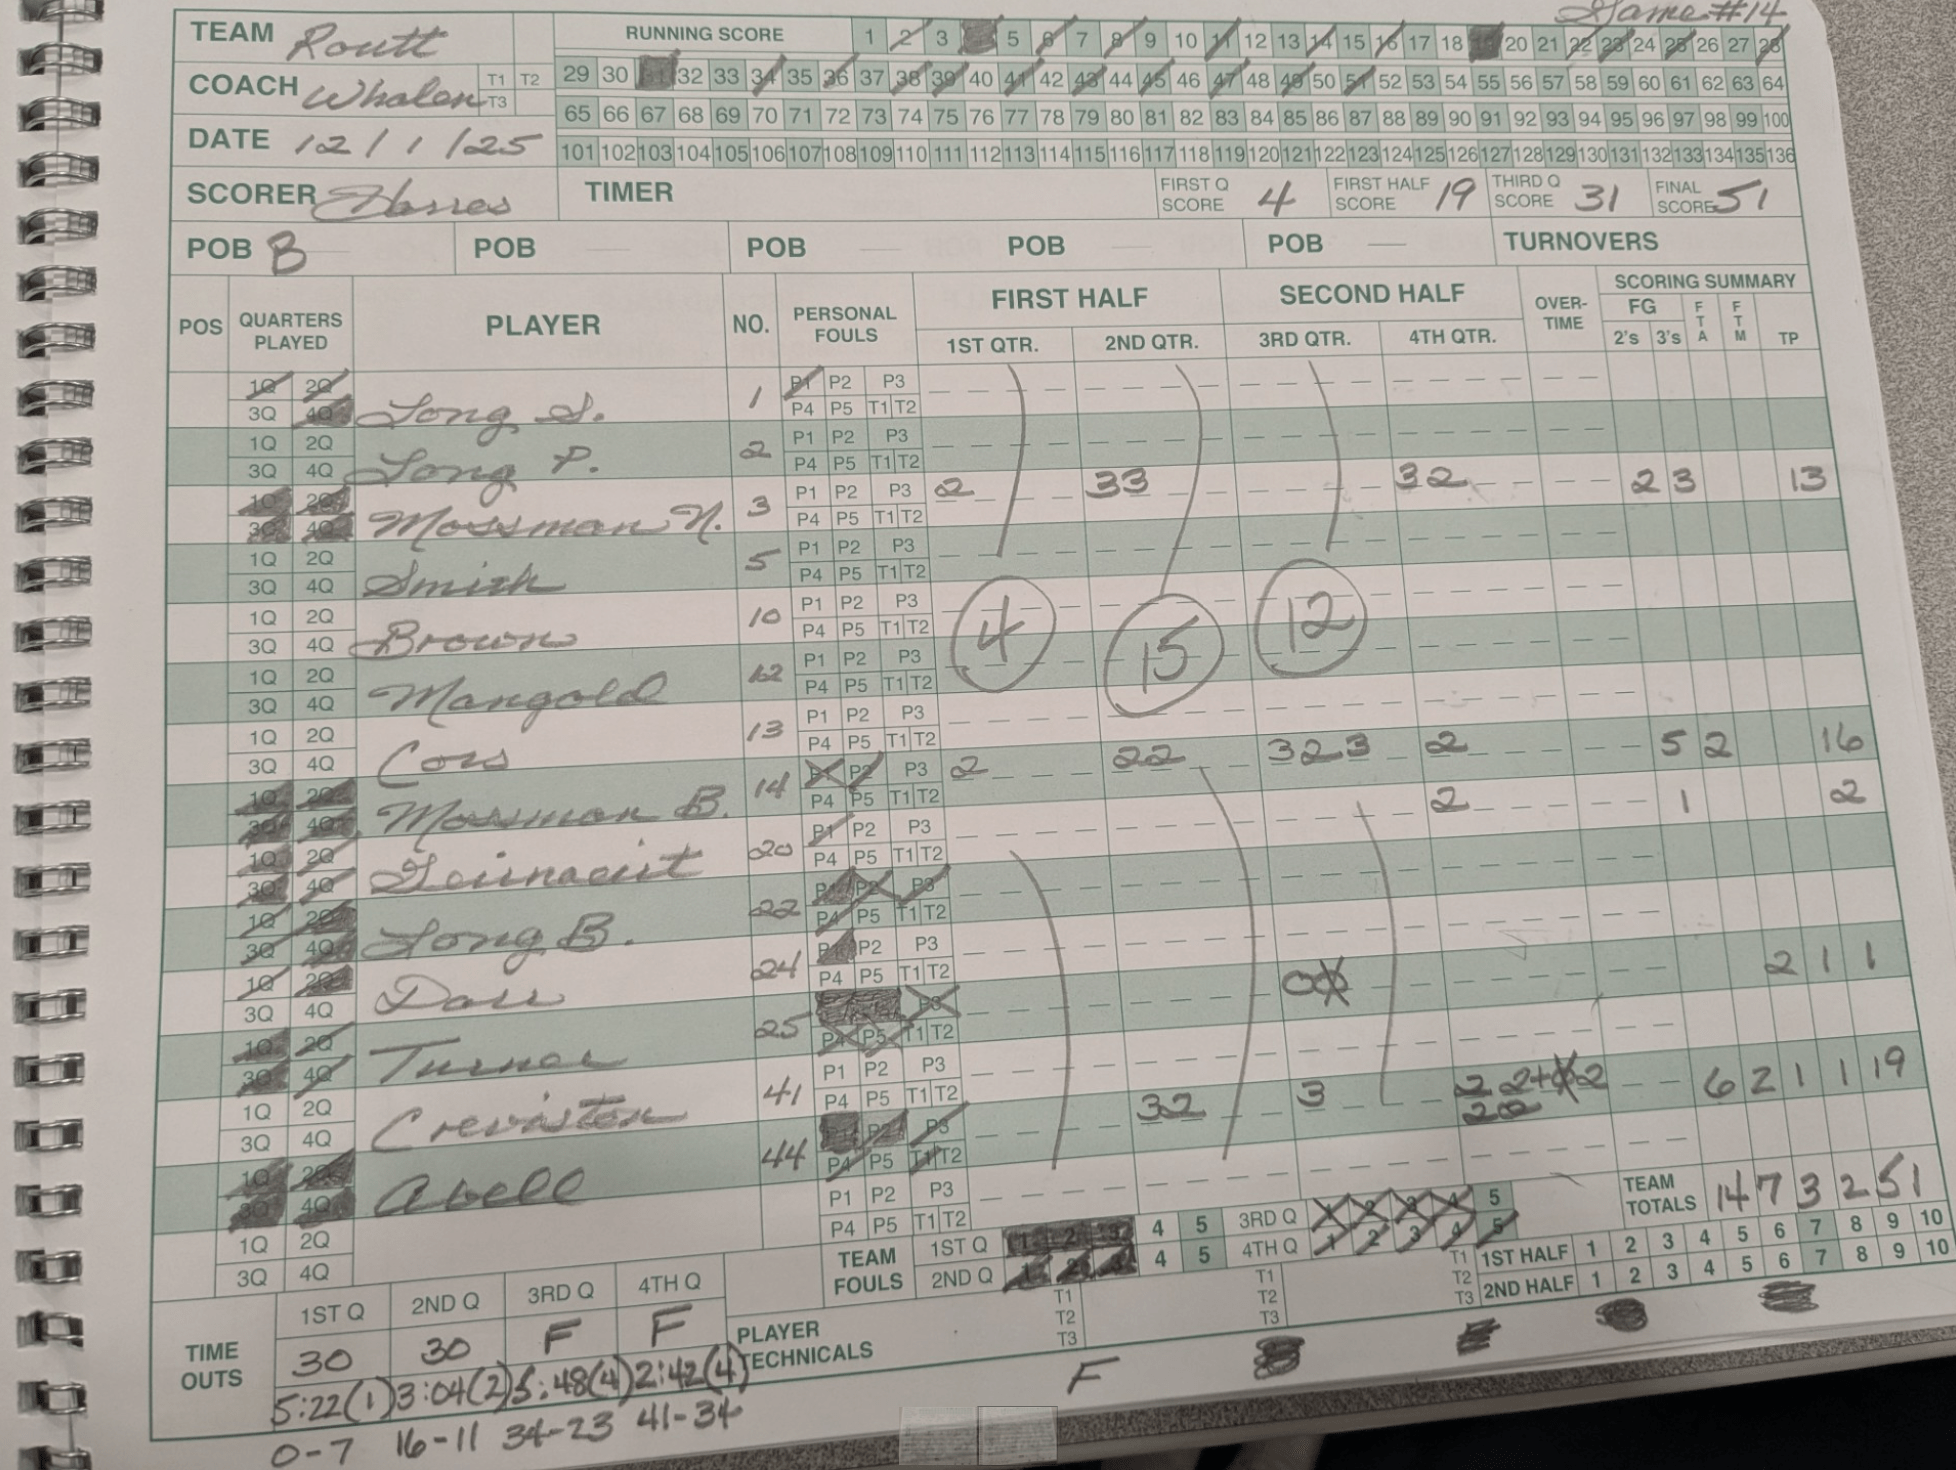 Game #14
TEAM Routt
RUNNING SCORE 1 2 3 5 6 7 8 9 10 11 12 13 14 15 16 17 18 19 20 21 22 23 24 25 26 27 28
COACH Whalen T1 T2 T3
29 30 31 32 33 34 35 36 37 38 39 40 41 42 43 44 45 46 47 48 49 50 51 52 53 54 55 56 57 58 59 60 61 62 63 64
65 66 67 68 69 70 71 72 73 74 75 76 77 78 79 80 81 82 83 84 85 86 87 88 89 90 91 92 93 94 95 96 97 98 99 100
DATE 12/1/25
101 102 103 104 105 106 107 108 109 110 111 112 113 114 115 116 117 118 119 120 121 122 123 124 125 126 127 128 129 130 131 132 133 134 135 136
SCORER TIMER FIRST Q SCORE 4 FIRST HALF SCORE 19 THIRD Q SCORE 31 FINAL SCORE 51
POB B POB POB POB POB TURNOVERS
POS QUARTERS PLAYED PLAYER NO. PERSONAL FOULS FIRST HALF SECOND HALF OVER-TIME SCORING SUMMARY
1ST QTR. 2ND QTR. 3RD QTR. 4TH QTR. FG 2's 3's FTA FTM TP
1Q 2Q P1 P2 P3
3Q 4Q Long, S. 1 P4 P5 T1 T2
1Q 2Q P1 P2 P3
3Q 4Q Long P. 2 P4 P5 T1 T2
1Q 2Q P1 P2 P3 2 33 32 2 3 13
3Q 4Q Mossman N. 3 P4 P5 T1 T2
1Q 2Q P1 P2 P3
3Q 4Q Smith 5 P4 P5 T1 T2
1Q 2Q P1 P2 P3
3Q 4Q Brown 10 P4 P5 T1 T2
4 15 12
1Q 2Q P1 P2 P3
3Q 4Q Mangold 12 P4 P5 T1 T2
1Q 2Q P1 P2 P3
3Q 4Q Cors 13 P4 P5 T1 T2
1Q 2Q P1 P2 P3 2 22 323 2 5 2 16
3Q 4Q Mossman B. 14 P4 P5 T1 T2
1Q 2Q P1 P2 P3 2 1 2
3Q 4Q 20 P4 P5 T1 T2
1Q 2Q P1 P2 P3
3Q 4Q Long B. 22 P4 P5 T1 T2
1Q 2Q P1 P2 P3
3Q 4Q 24 P4 P5 T1 T2
1Q 2Q P3 2 1 1
3Q 4Q Turner 25 P4 P5 T1 T2
1Q 2Q P1 P2 P3
3Q 4Q Creviston 41 P4 P5 T1 T2
1Q 2Q P2 P3 32 3 6 2 1 1 19
3Q 4Q Abell 44 P4 P5 T1 T2
1Q 2Q P1 P2 P3
3Q 4Q P4 P5 T1 T2
TEAM TOTALS 14 7 3 2 51
TEAM FOULS 1ST Q 1 2 3 4 5 3RD Q 1 2 3 4 5
2ND Q 1 2 3 4 5 4TH Q 1 2 3 4 5
1ST HALF 1 2 3 4 5 6 7 8 9 10
2ND HALF 1 2 3 4 5 6 7 8 9 10
TIME OUTS 1ST Q 2ND Q 3RD Q 4TH Q
30 30 F F
5:22(1) 3:04(2) 5:48(4) 2:42(4)
0-7 16-11 34-23 41-34
PLAYER TECHNICALS T1 T2 T3 T1 T2 T3 T1 T2 T3
F